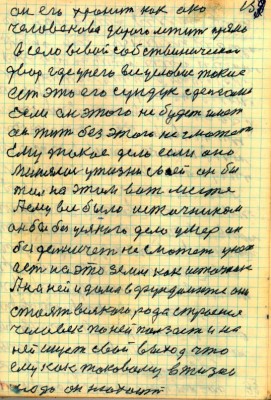 он его хранит как око
человеково дорого летит прямо
В село в свой собственический
двор где у него
есть это его сундук сделано
Если он этого не будет иметь
он жить без этого не сможет
Ему такое дело если оно
у жизни своей он бы
на этом вот месте
Ему все было источником
он бы без всякого дела умер он
без не сможет
на это земля как источник
А на ней и дома в фундаменте они
стоят всякого рода строения
человек по ней ползает и на
ней ищет свой выход что
ему как таковому в жизни
надо он находит